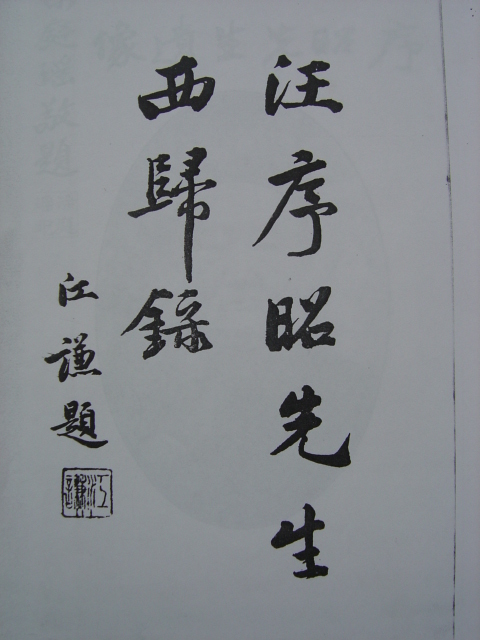 汪序昭先生
西歸錄
江謙題
江謙